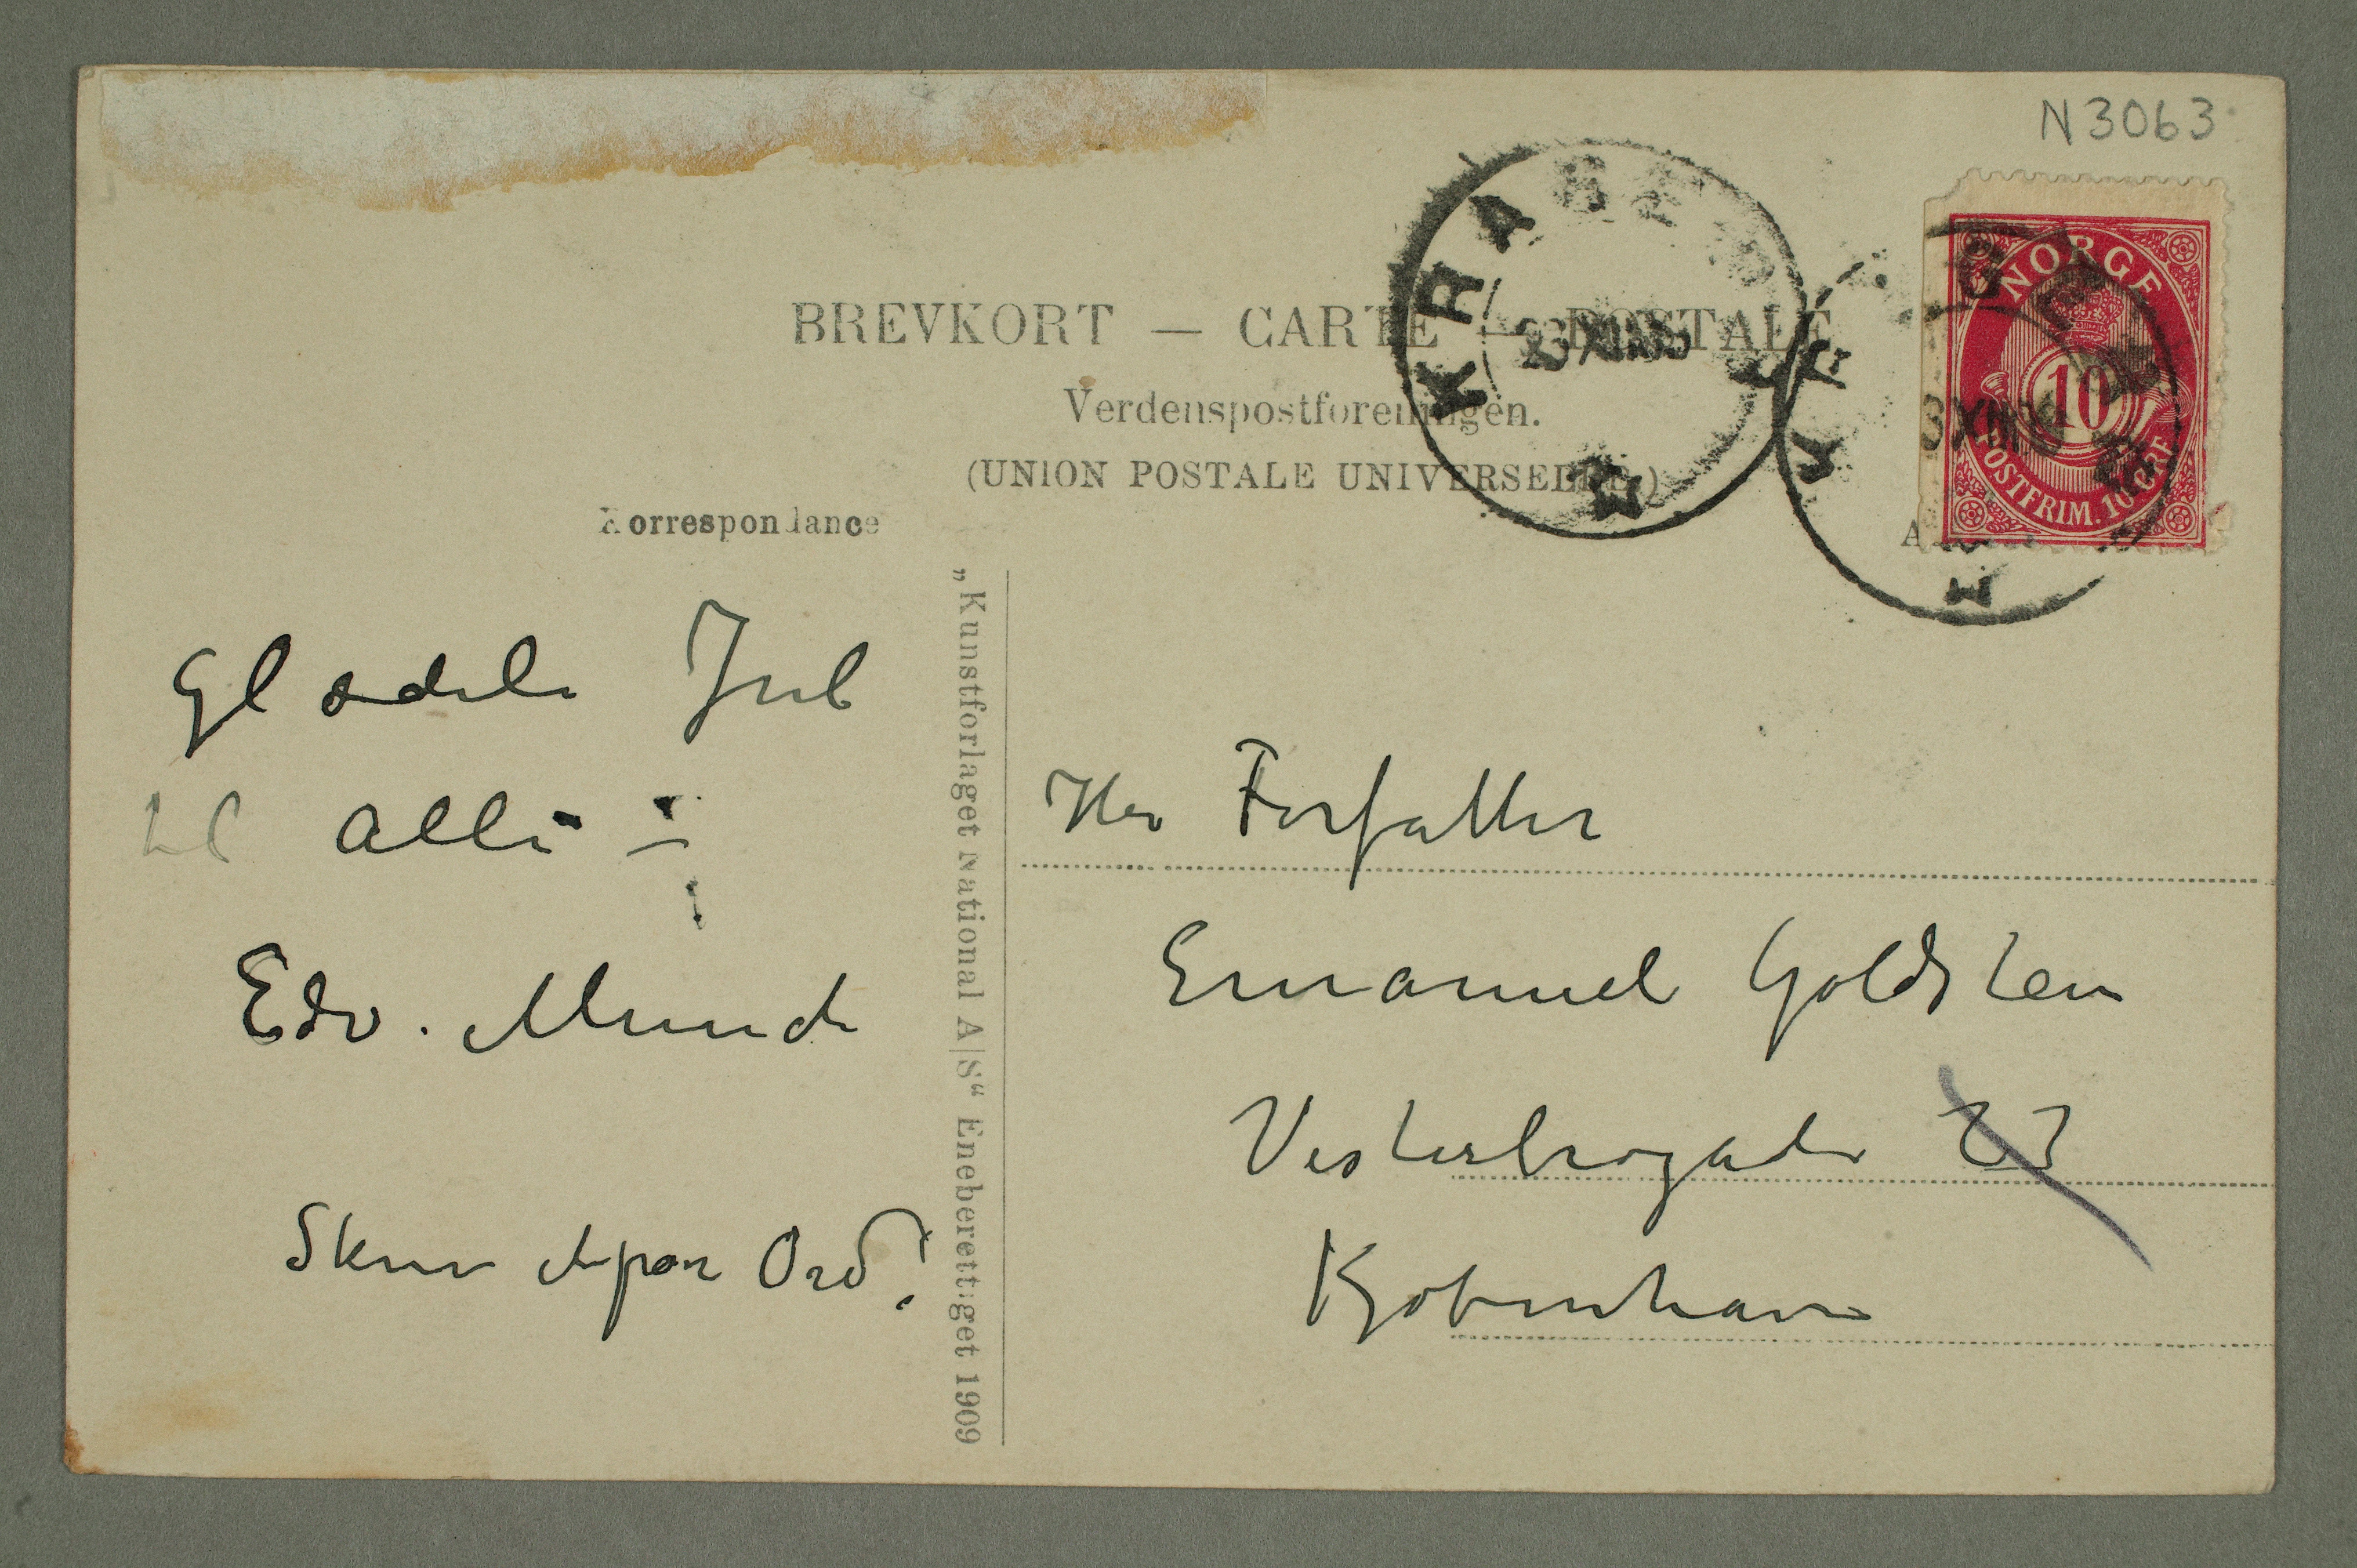 N3063
NORGE
10
POSTFRIM. 10 ØRE
KRAGERØ
23 XII 09
BREVKORT — CARTE — POSTALE
Verdenspostforeningen.
(UNION POSTALE UNIVERSELLE)
Korrespondance
Glædelig Jul
til alle
Edv. Munch
Skriv et par Ord?
„Kunstforlaget National A|S“ Eneberettiget 1909
Herr Forfatter
Emanuel Goldstein
Vesterbrogade 23
Kjøbenhavn